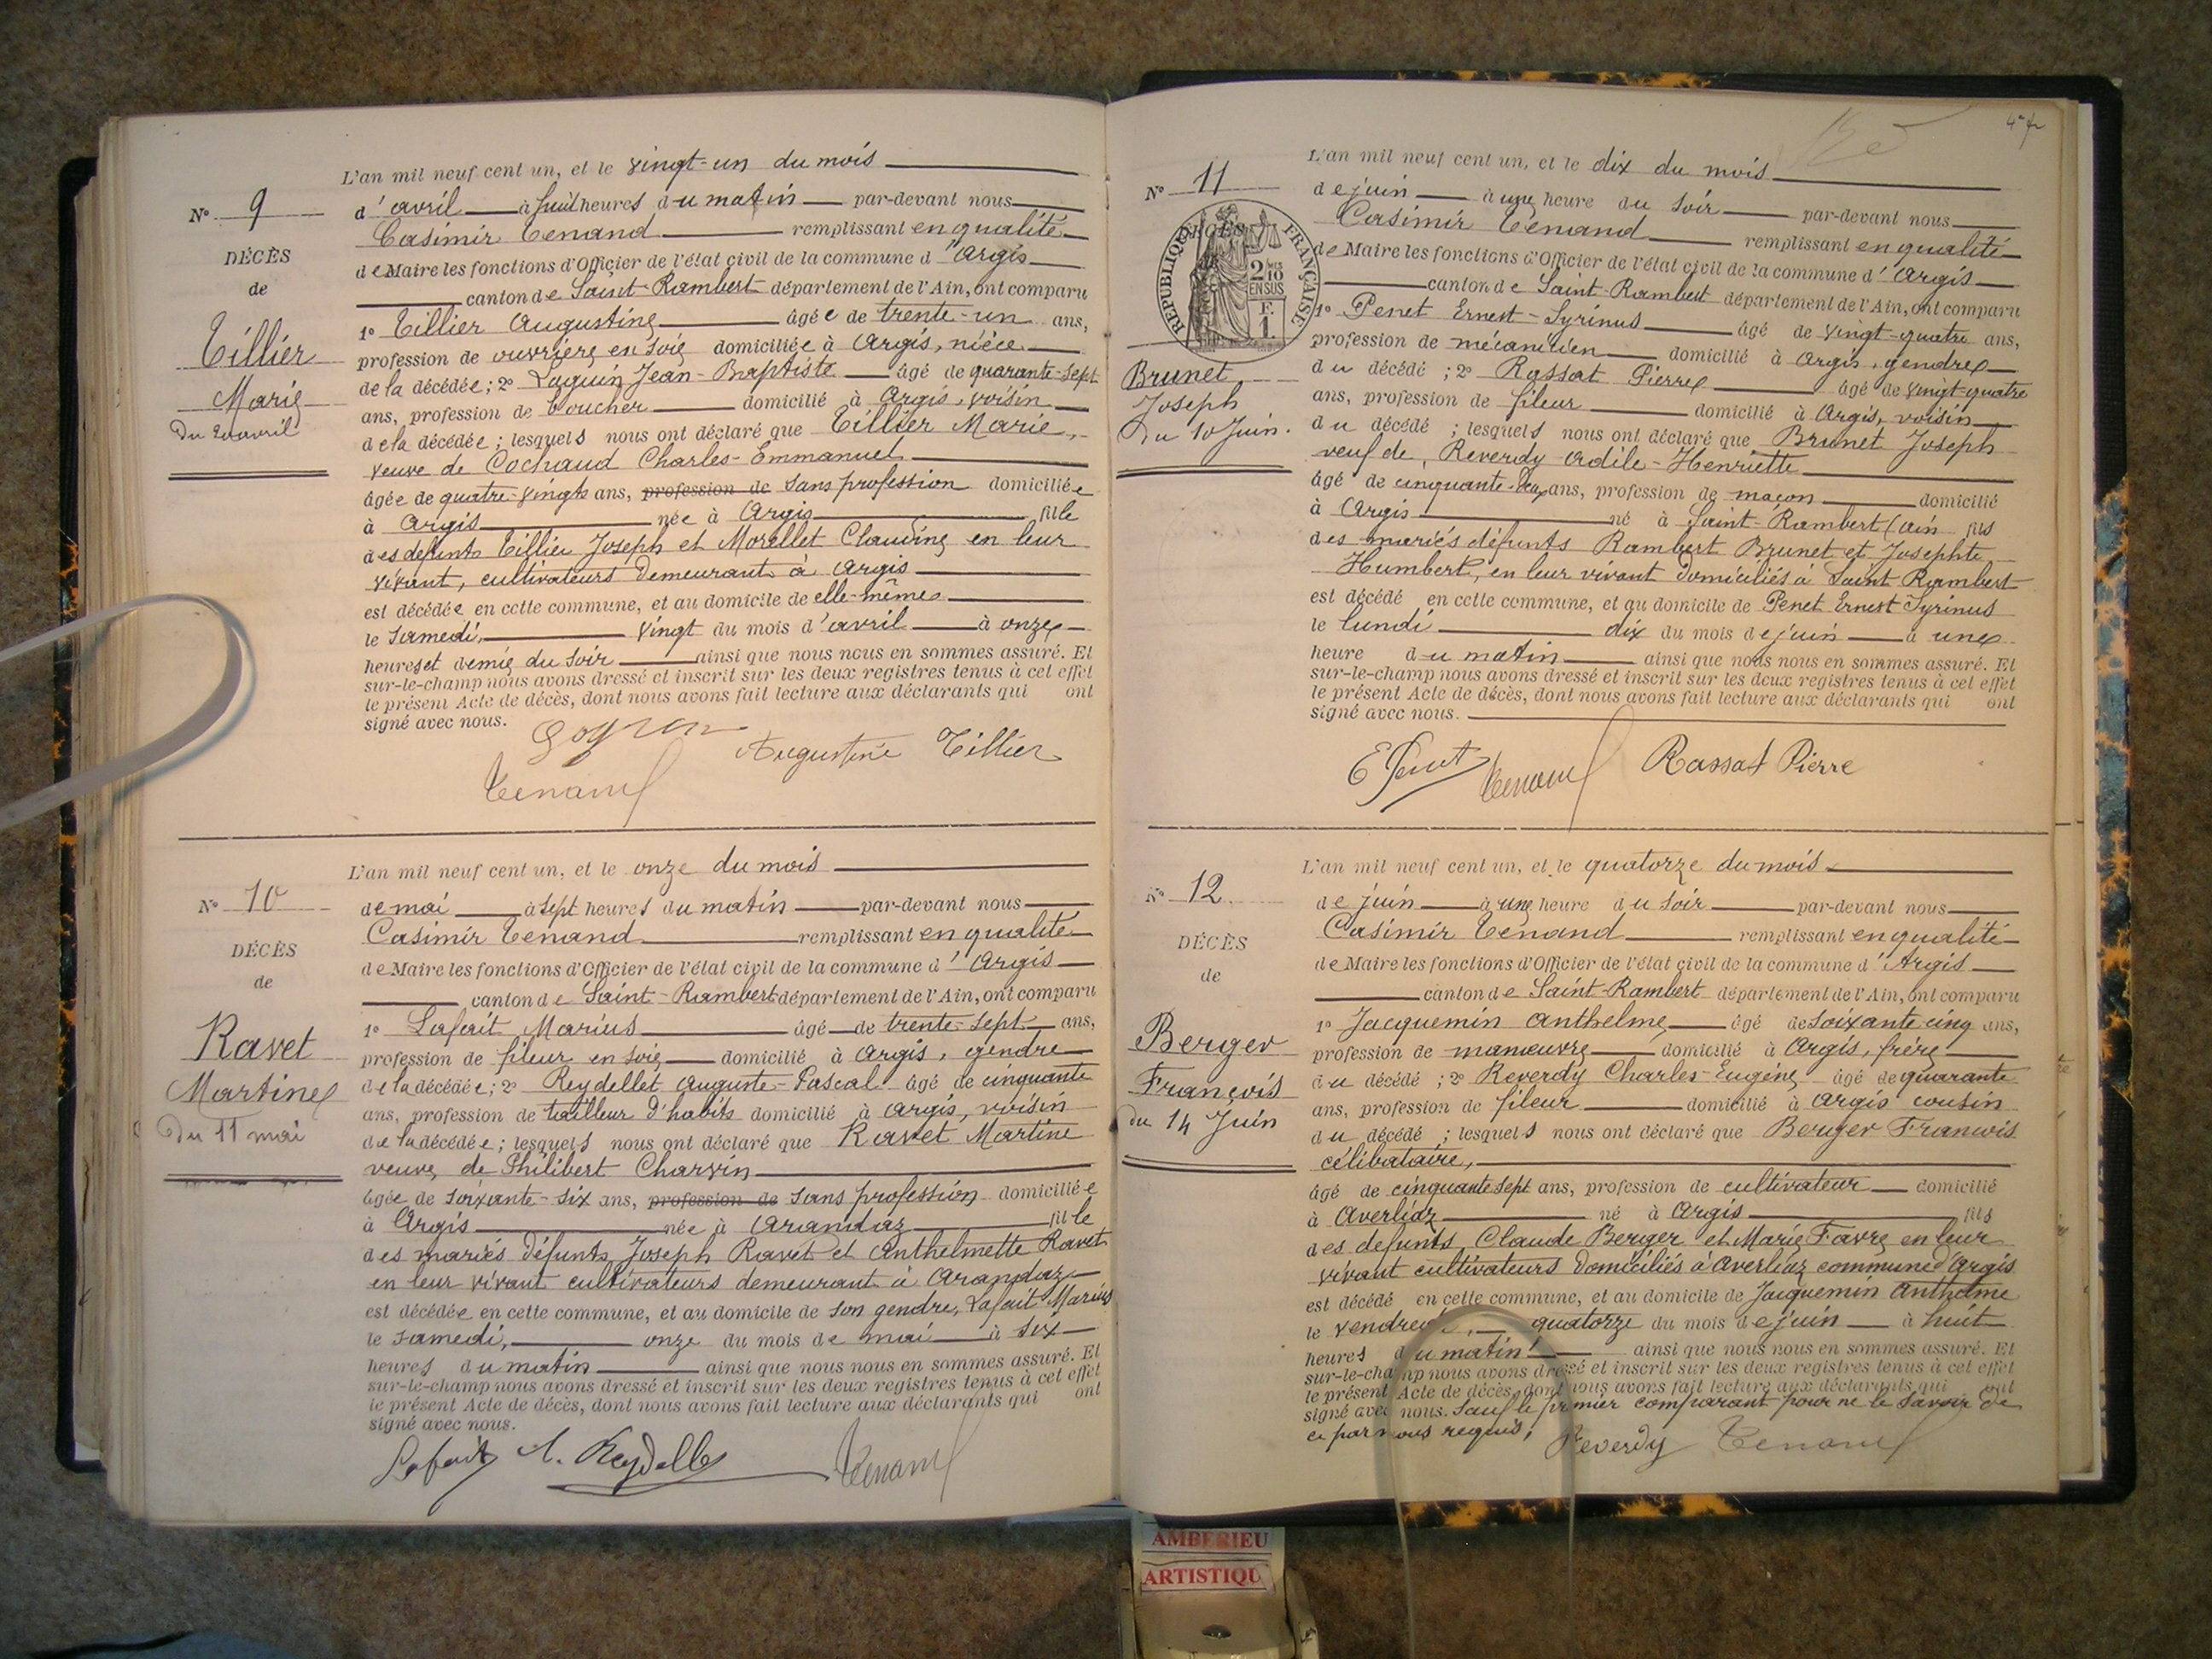 L'an mil neuf cent un, et le vingt-un du mois
N° 9
d'avril à huit heures du matin par-devant nous
Casimir Tenand remplissant en qualité
DÉCÈS
de Maire les fonctions d'Officier de l'état civil de la commune d'Argis
de
canton de Saint-Rambert département de l'Ain, ont comparu
1° Tillier Augustine âgée de trente-un ans,
Tillier
profession de ouvrière en soie domiciliée à Argis, nièce
Marie
de la décédée; 2° Laguin Jean-Baptiste âgé de quarante-sept
du 20 avril
ans, profession de boucher domicilié à Argis, voisin
de la décédée; lesquels nous ont déclaré que Tillier Marie,
veuve de Cochaud Charles-Emmanuel
âgée de quatre-vingts ans, profession de sans profession domiciliée
à Argis née à Argis fille
des défunts Tillier Joseph et Morellet Claudine en leur
vivant, cultivateurs demeurant à Argis
est décédée en cette commune, et au domicile de elle-même
le samedi, vingt du mois d'avril à onze
heures et demie du soir ainsi que nous nous en sommes assuré. Et
sur-le-champ nous avons dressé et inscrit sur les deux registres tenus à cet effet
le présent Acte de décès, dont nous avons fait lecture aux déclarants qui ont
signé avec nous.
Augustine Tillier
Tenand
L'an mil neuf cent un, et le onze du mois
N° 10
de mai à sept heures du matin par-devant nous
Casimir Tenand remplissant en qualité
DÉCÈS
de Maire les fonctions d'Officier de l'état civil de la commune d'Argis
de
canton de Saint-Rambert département de l'Ain, ont comparu
1° Lafait Marius âgé de trente-sept ans,
Ravet
profession de fileur en soie domicilié à Argis, gendre
Martine
de la décédée; 2° Reydellet Auguste-Pascal âgé de cinquante
du 11 mai
ans, profession de tailleur d'habits domicilié à Argis, voisin
de la décédée; lesquels nous ont déclaré que Ravet Martine
veuve de Philibert Charvin
âgée de soixante-six ans, profession de sans profession domiciliée
à Argis née à Arandaz fille
des mariés défunts Joseph Ravet et Anthelmette Ravet
en leur vivant cultivateurs demeurant à Arandaz
est décédée en cette commune, et au domicile de son gendre, Lafait Marius
le samedi, onze du mois de mai à six
heures du matin ainsi que nous nous en sommes assuré. Et
sur-le-champ nous avons dressé et inscrit sur les deux registres tenus à cet effet
le présent Acte de décès, dont nous avons fait lecture aux déclarants qui ont
signé avec nous.
Lafait A. Reydellet Tenand
L'an mil neuf cent un, et le dix du mois
N° 11
de juin à une heure du soir par-devant nous
Casimir Tenand remplissant en qualité
DÉCÈS
RÉPUBLIQUE FRANÇAISE
2/10 EN SUS
F. 1.
de Maire les fonctions d'Officier de l'état civil de la commune d'Argis
canton de Saint-Rambert département de l'Ain, ont comparu
1° Penet Ernest-Syrinus âgé de vingt-quatre ans,
profession de mécanicien domicilié à Argis, gendre
Brunet
du décédé; 2° Rassat Pierre âgé de vingt-quatre
Joseph
ans, profession de fileur domicilié à Argis, voisin
du 10 Juin.
du décédé; lesquels nous ont déclaré que Brunet Joseph
veuf de Reverdy Adile-Henriette
âgé de cinquante-deux ans, profession de maçon domicilié
à Argis né à Saint-Rambert (ain fils
des mariés défunts Rambert Brunet et Josephte
Humbert, en leur vivant domiciliés à Saint Rambert
est décédé en cette commune, et au domicile de Penet Ernest Syrinus
le lundi dix du mois de juin à une
heure du matin ainsi que nous nous en sommes assuré. Et
sur-le-champ nous avons dressé et inscrit sur les deux registres tenus à cet effet
le présent Acte de décès, dont nous avons fait lecture aux déclarants qui ont
signé avec nous.
E Penet Tenand Rassat Pierre
L'an mil neuf cent un, et le quatorze du mois
N° 12
de juin à une heure du soir par-devant nous
Casimir Tenand remplissant en qualité
DÉCÈS
de Maire les fonctions d'Officier de l'état civil de la commune d'Argis
de
canton de Saint-Rambert département de l'Ain, ont comparu
1° Jacquemin Anthelme âgé de soixante cinq ans,
Berger
profession de manœuvre domicilié à Argis, frère
François
du décédé; 2° Reverdy Charles-Eugène âgé de quarante
du 14 Juin
ans, profession de fileur domicilié à Argis cousin
du décédé; lesquels nous ont déclaré que Berger Francois
célibataire,
âgé de cinquante sept ans, profession de cultivateur domicilié
à Averliaz né à Argis fils
des defunts Claude Berger et Marie Favre en leur
vivant cultivateurs domiciliés à Averliaz commune d'Argis
est décédé en cette commune, et au domicile de Jacquemin Anthelme
le vendredi, quatorze du mois de juin à huit
heures du matin ainsi que nous nous en sommes assuré. Et
sur-le-champ nous avons dressé et inscrit sur les deux registres tenus à cet effet
le présent Acte de décès, dont nous avons fait lecture aux déclarants qui ont
signé avec nous. sauf le premier comparant pour ne le savoir de
ce par nous requis,
Reverdy Tenand
AMBERIEU
ARTISTIQU